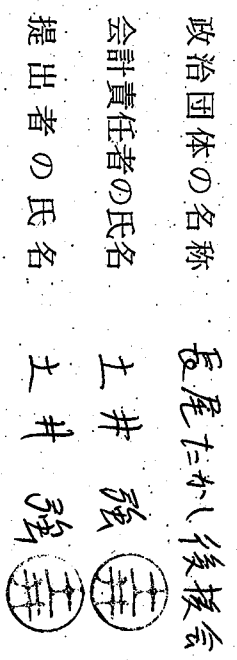 政治団体の名称 長尾たかし後援会
会計責任者の氏名 土井 強
提出者の氏名 土井 強
土井
土井